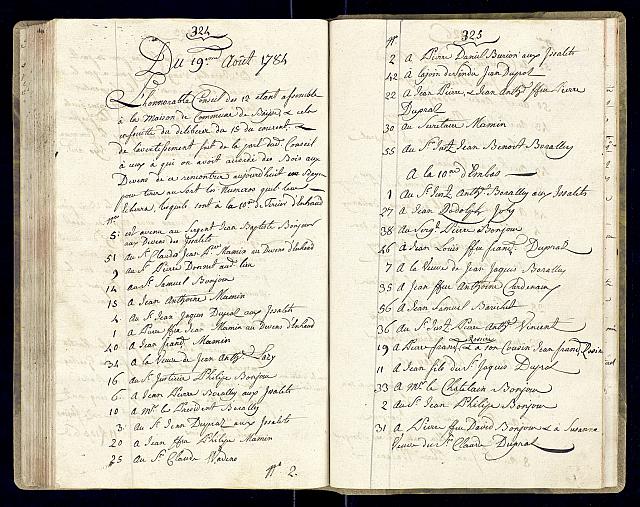 324
Du 19me Août 1784
L'honnorable Conseil des 12 etant assemblé
à la Maison de Commune de & cela
ensuitte du deliberer du 15 du courent, &
de l'avertissement fait de la part dud. Conseil
à ceux à qui on avoit accordé des Bois aux
Devens de se rencontrer aujourd'huit
pour tirer au sort les Numeros qu'il leur
lesquels sont à la 10me de
Nro
5: est avenu au Sergent Jean Baptiste Bonjour
aux Devens des Issalits
51 au Sr Claude Jean Mamin au Devens d'Enhaud
9 au Sr Pierre Donnet
14 au Sr Samuel Bonjour
15 a Jean Anthoine Mamin
4 au Sr Jean Jaques Duprat aux Issalits
1 a Pierre ffeu Jean Mamin au Devens d'Enhaud
40 a Jean franç. Mamin
34 a la Veuve de Jean Anth.
16 au Sr Justicier Philipe Bonjour
6 a Jean Pierre Boratley aux Issalits
10 a Mr le President Boratley
3 au Sr Jean Duprat aux Issalits
20 a Jean ffeu Philipe Mamin
25 au Sr Claude
Nro 2.
325
Nro
2 a Pierre Daniel Burion aux Issalits
42 a Jean Duprat
22 a Jean Pierre, & Jean Anth. ffeu Pierre
Duprat
30 au Secretaire Mamin
55 au Sr Just. Jean Benoit Boratley
A la 10me d'Embas
1 au Sr Just. Anth. Boratley aux Issalits
27 a Jean Rodolph
38 au Sergt Pierre Bonjour
46 a Jean Louis ffeu franç. Duprat
7 a la Veuve de Jean Jaques Boratley
35 a Jean ffeu Anthoine Chardenain
56 a Jean Samuel
36 au Sr Just. Pierre Anth. Vincent
19 a Pierre franç. & a son Cousin Jean franç.
11 a Jean fils du Sr Jaques Duprat
33 a Mr le Chatelain Bonjour
2 au Sr Jean Philipe Bonjour
31 a Pierre ffeu David Bonjour & a Susanne
Veuve du Sr Claude Duprat